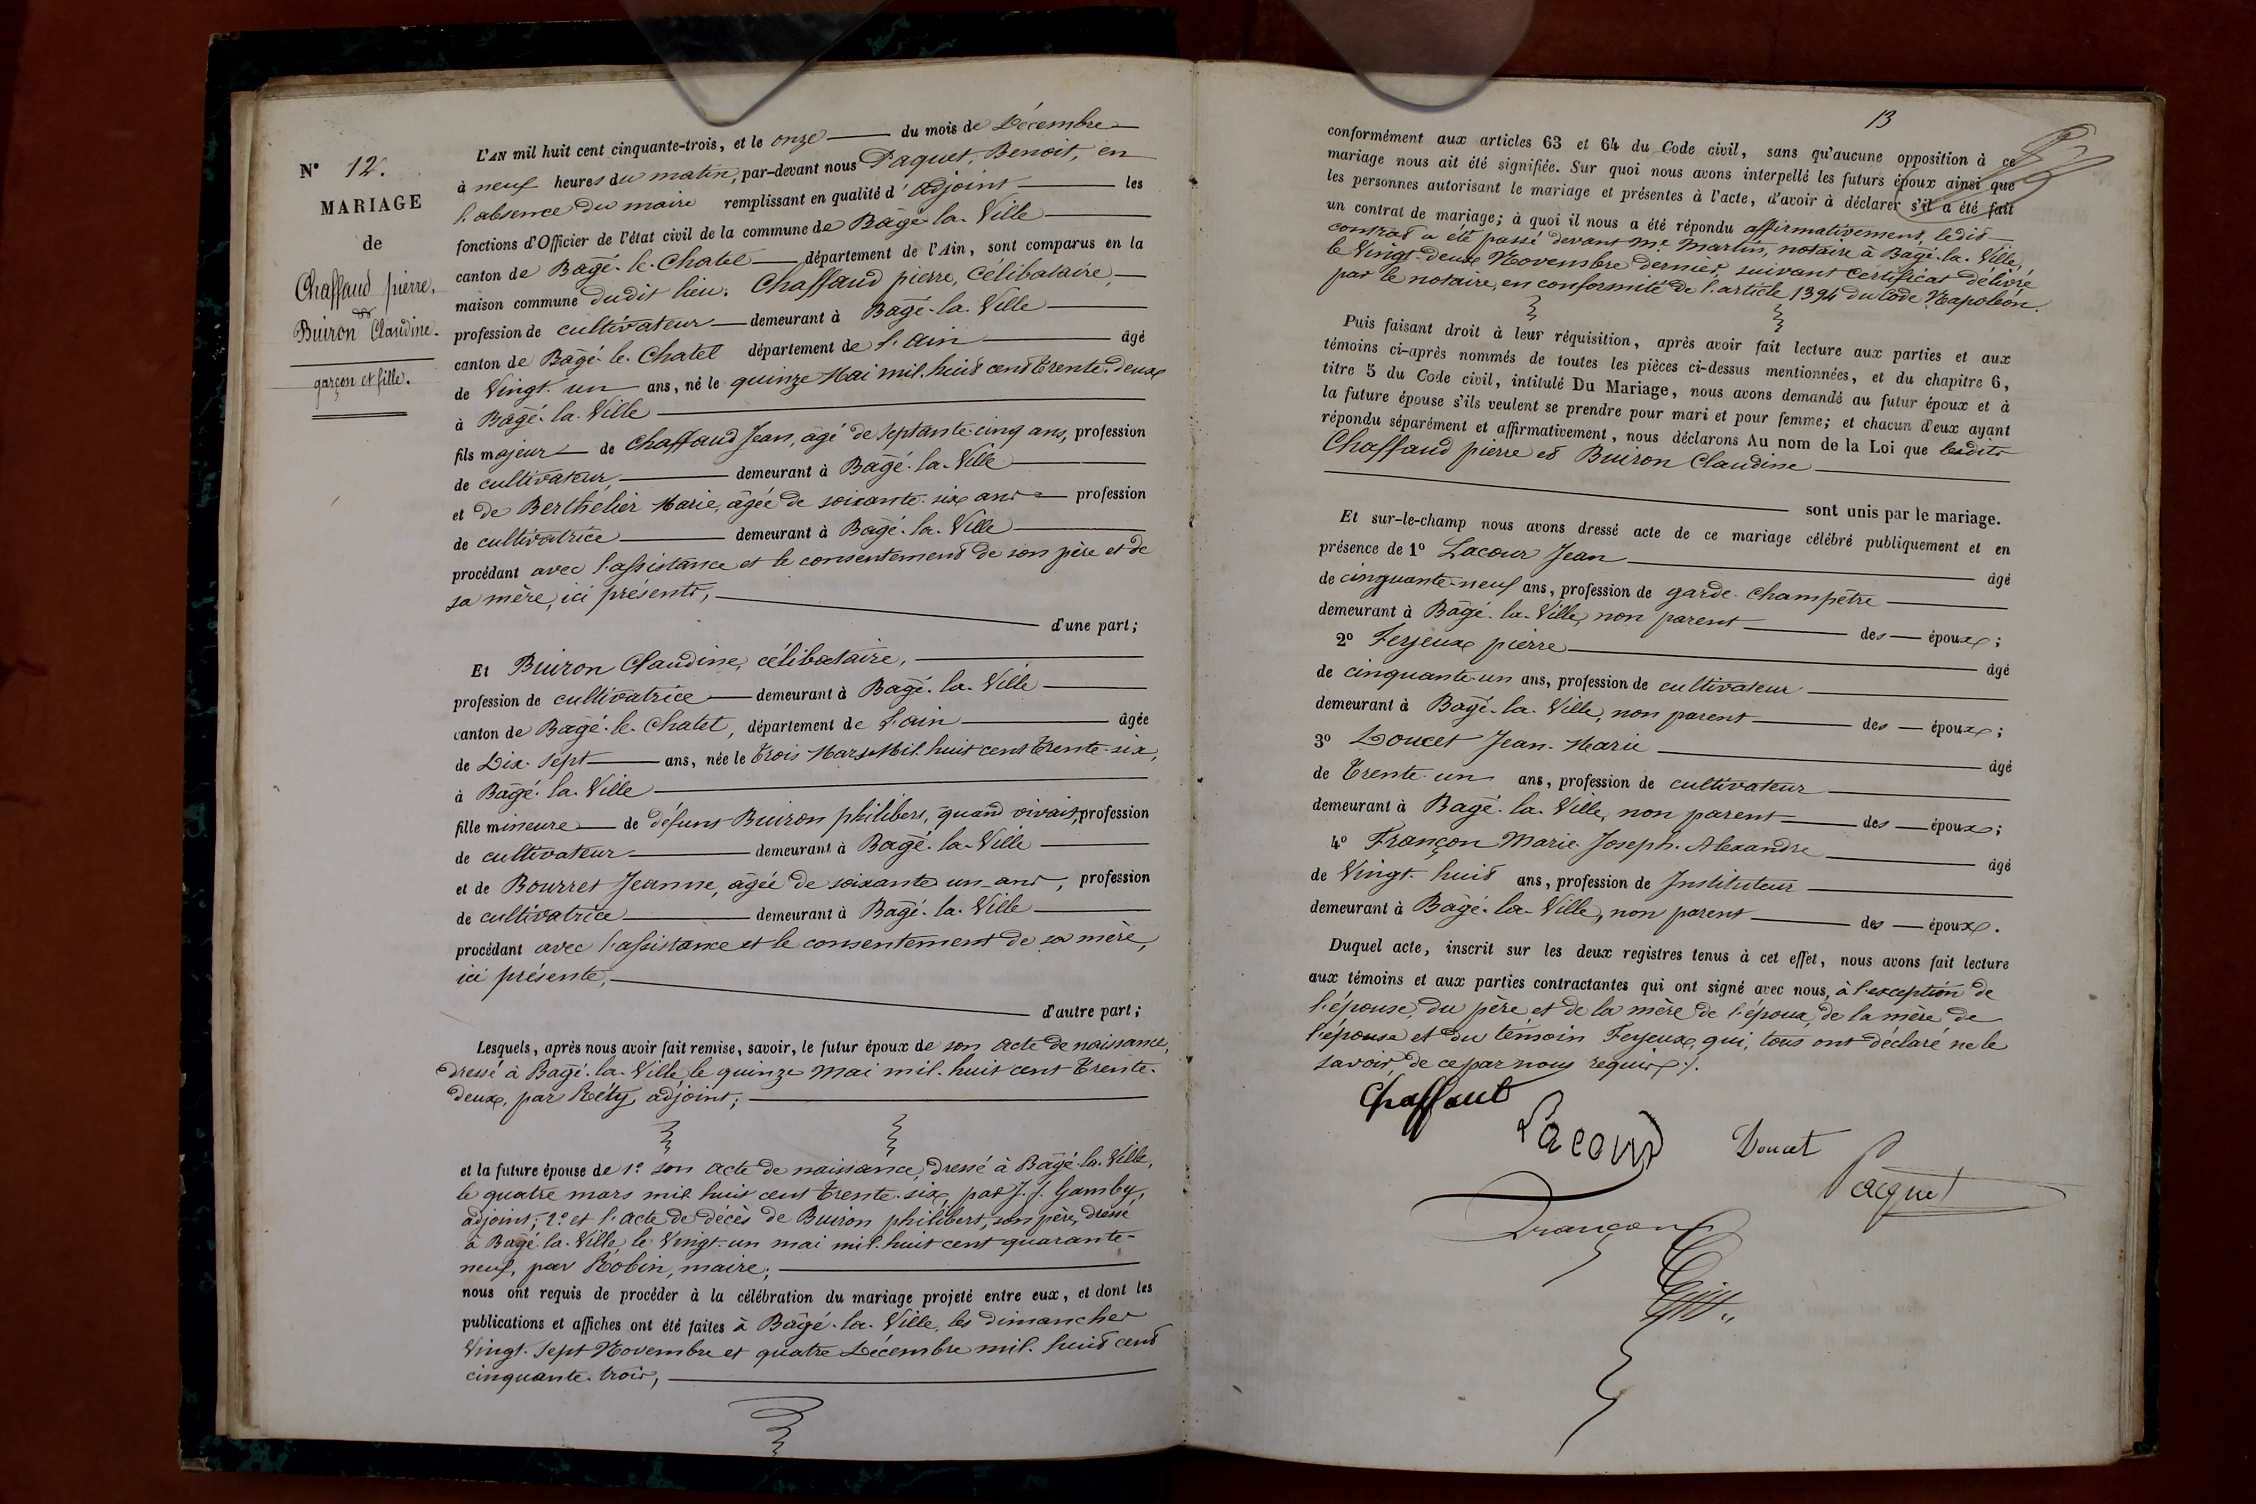 N° 12.
MARIAGE
de
Chaffaud pierre,
et
Buiron Claudine.
garçon et fille.
L'AN mil huit cent cinquante-trois, et le onze du mois de Décembre
à neuf heures du matin, par-devant nous Paquet, Benoit, en
l'absence du maire remplissant en qualité d'adjoint les
fonctions d'Officier de l'état civil de la commune de Bâgé-la-Ville
canton de Bâgé-le-Chatel département de l'Ain, sont comparus en la
maison commune dudit lieu. Chaffaud pierre, Célibataire,
profession de cultivateur demeurant à Bâgé-la-Ville
canton de Bâgé-le-Chatel département de l'ain âgé
de Vingt-un ans, né le quinze Mai mil-huit cent trente-deux
à Bâgé-la-Ville
fils majeur de Chaffaud Jean, âgé de septante-cinq ans, profession
de cultivateur, demeurant à Bâgé-la-Ville
et de Berthelier Marie, âgée de soixante-six ans profession
de cultivatrice demeurant à Bâgé-la-Ville
procédant avec l'assistance et le consentement de son père et de
sa mère, ici présents,
d'une part;
Et Buiron Claudine, célibataire,
profession de cultivatrice demeurant à Bâgé-la-Ville
canton de Bâgé-le-Chatel, département de l'ain âgée
de Dix-Sept ans, née le trois Mars Mil-huit cent trente-six,
à Bâgé-la-Ville
fille mineure de défunt Buiron philibert, quand vivait, profession
de cultivateur demeurant à Bâgé-la-Ville
et de Bourret Jeanne, âgée de soixante un-ans, profession
de cultivatrice demeurant à Bâgé-la-Ville
procédant avec l'assistance et le consentement de sa mère,
ici présente,
d'autre part;
Lesquels, après nous avoir fait remise, savoir, le futur époux de son acte de naissance,
dressé à Bâgé-la-Ville le quinze Mai mil-huit cent trente-
deux, par Réty, adjoint;
et la future épouse de 1° son acte de naissance, dressé à Bâgé-la-Ville,
le quatre mars mil huit cent trente-six, par J. J. Gamby,
adjoint; 2° et l'acte de décès de Buiron philibert, son père, dressé
à Bâgé-la-Ville, le Vingt-un mai mil-huit cent quarante-
neuf, par Robin, maire;
nous ont requis de procéder à la célébration du mariage projeté entre eux, et dont les
publications et affiches ont été faites à Bâgé-la-Ville, les dimanches
Vingt-Sept Novembre et quatre Décembre mil-huit cent
cinquante-trois,
13
conformément aux articles 63 et 64 du Code civil, sans qu'aucune opposition à ce
mariage nous ait été signifiée. Sur quoi nous avons interpellé les futurs époux ainsi que
les personnes autorisant le mariage et présentes à l'acte, d'avoir à déclarer s'il a été fait
un contrat de mariage; à quoi il nous a été répondu affirmativement, ledit
contrat a été passé devant Me Martin, notaire à Bâgé-la-Ville,
le Vingt-deux Novembre dernier, suivant Certificat délivré
par le notaire, en conformité de l'article 1394 du Code Napoléon.
Puis faisant droit à leur réquisition, après avoir fait lecture aux parties et aux
témoins ci-après nommés de toutes les pièces ci-dessus mentionnées, et du chapitre 6,
titre 5 du Code civil, intitulé Du Mariage, nous avons demandé au futur époux et à
la future épouse s'ils veulent se prendre pour mari et pour femme; et chacun d'eux ayant
répondu séparément et affirmativement, nous déclarons Au nom de la Loi que lesdits
Chaffaud pierre et Buiron Claudine
sont unis par le mariage.
Et sur-le-champ nous avons dressé acte de ce mariage célébré publiquement et en
présence de 1° Lacour Jean âgé
de cinquante-neuf ans, profession de garde-champêtre
demeurant à Bâgé-la-Ville, non parent des époux;
2° Ferjeux pierre âgé
de cinquante-un ans, profession de cultivateur
demeurant à Bâgé-la-Ville, non parent des époux;
3° Doucet Jean-Marie âgé
de trente-un ans, profession de cultivateur
demeurant à Bâgé-la-Ville, non parent des époux;
4° Françon Marie-Joseph-Alexandre âgé
de Vingt-huit ans, profession de Instituteur
demeurant à Bâgé-la-Ville, non parent des époux.
Duquel acte, inscrit sur les deux registres tenus à cet effet, nous avons fait lecture
aux témoins et aux parties contractantes qui ont signé avec nous, à l'exception de
l'épouse, du père et de la mère de l'époux, de la mère de
l'épouse et du témoin Ferjeux, qui, tous ont déclaré ne le
savoir, de ce par nous requis.
Chaffaut
Lacour
Doucet
Pâquet
Françon